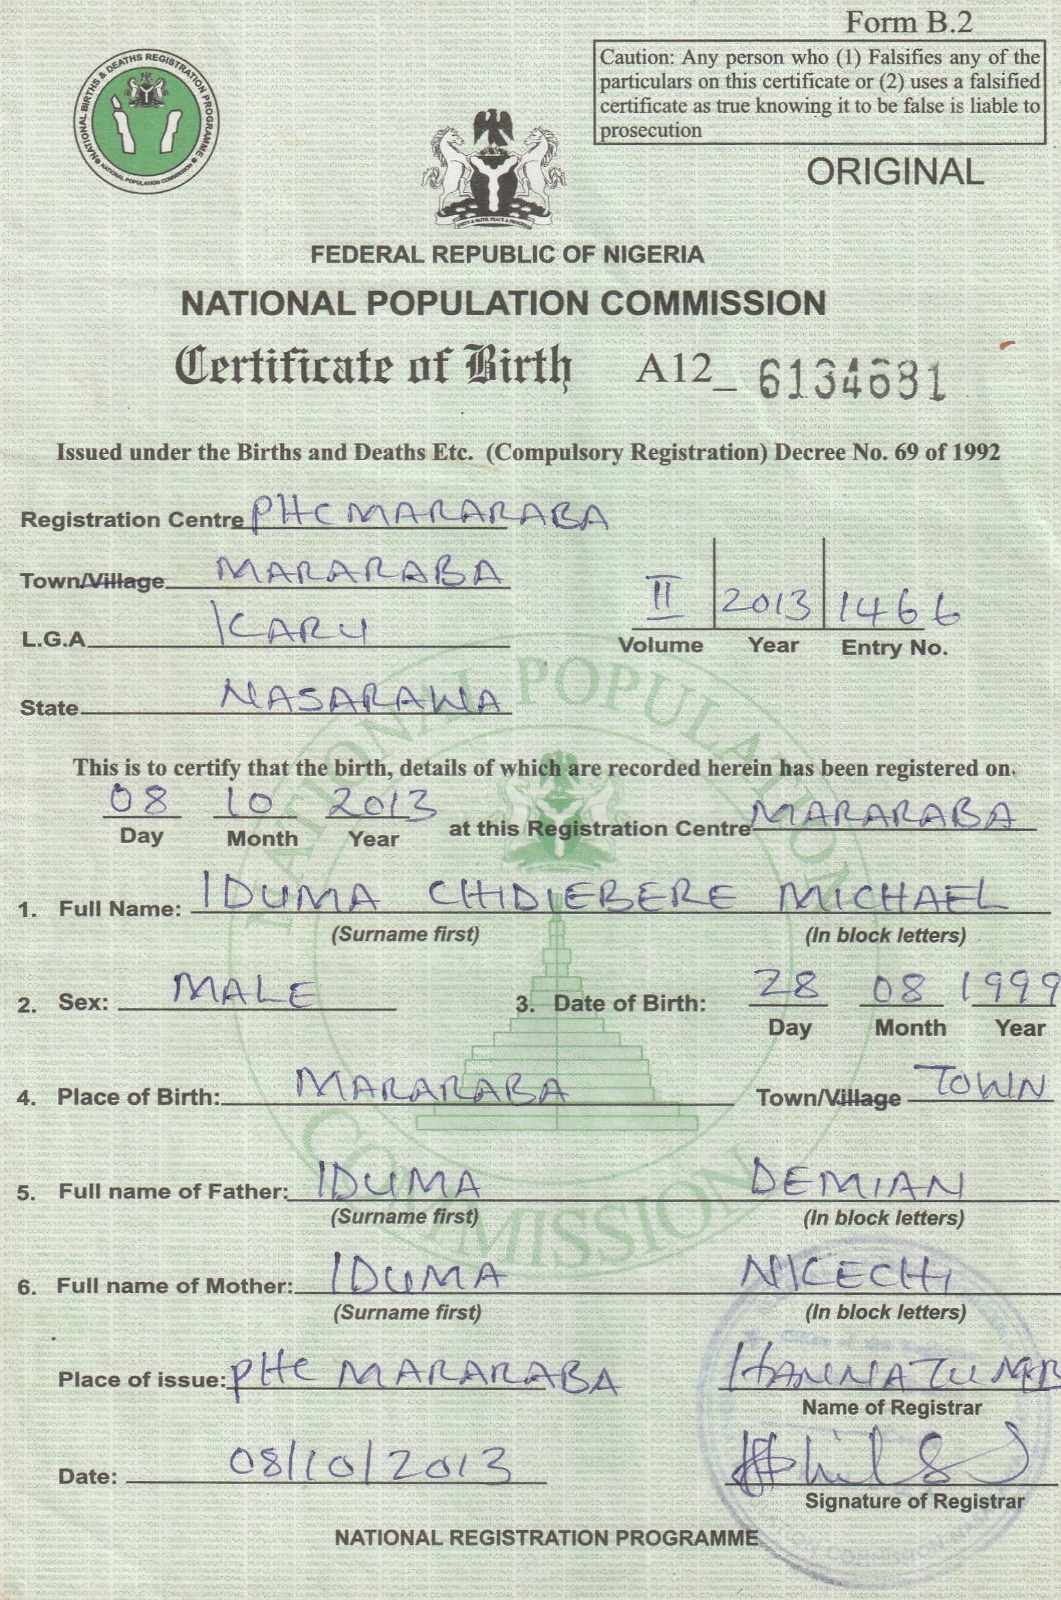 Form B.2
Caution: Any person who (1) Falsifies any of the
particulars on this certificate or (2) uses a falsified
certificate as true knowing it to be false is liable to
prosecution
ORIGINAL
NATIONAL BIRTHS & DEATHS REGISTRATION PROGRAMME
NATIONAL POPULATION COMMISSION
FEDERAL REPUBLIC OF NIGERIA
NATIONAL POPULATION COMMISSION
Certificate of Birth A12_ 6134681
Issued under the Births and Deaths Etc. (Compulsory Registration) Decree No. 69 of 1992
Registration Centre PHC MARARABA
Town/Village MARARABA
L.G.A KARU
II 2013 1466
Volume Year Entry No.
State NASARAWA
This is to certify that the birth, details of which are recorded herein has been registered on.
08 10 2013 at this Registration Centre MARARABA
Day Month Year
1. Full Name: IDUMA CHIDIEBERE MICHAEL
(Surname first) (In block letters)
2. Sex: MALE 3. Date of Birth: 28 08 1999
Day Month Year
4. Place of Birth: MARARABA Town/Village TOWN
5. Full name of Father: IDUMA DEMIAN
(Surname first) (In block letters)
6. Full name of Mother: IDUMA NICECHI
(Surname first) (In block letters)
Place of issue: PHC MARARABA HANNATU
Name of Registrar
Date: 08/10/2013
Signature of Registrar
NATIONAL REGISTRATION PROGRAMME
NATIONAL POPULATION COMMISSION